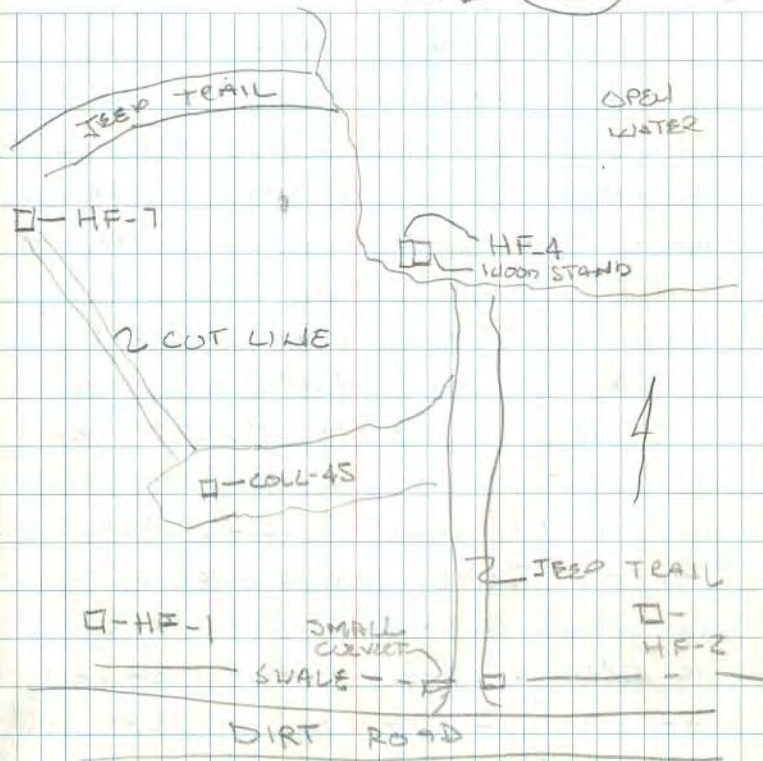 JEEP TRAIL
OPEN
WATER
HF-7
HF-4
WOOD STAND
CUT LINE
COLL-45
JEEP TRAIL
HF-1
SMALL
CULVERT
HF-2
SWALE
DIRT ROAD